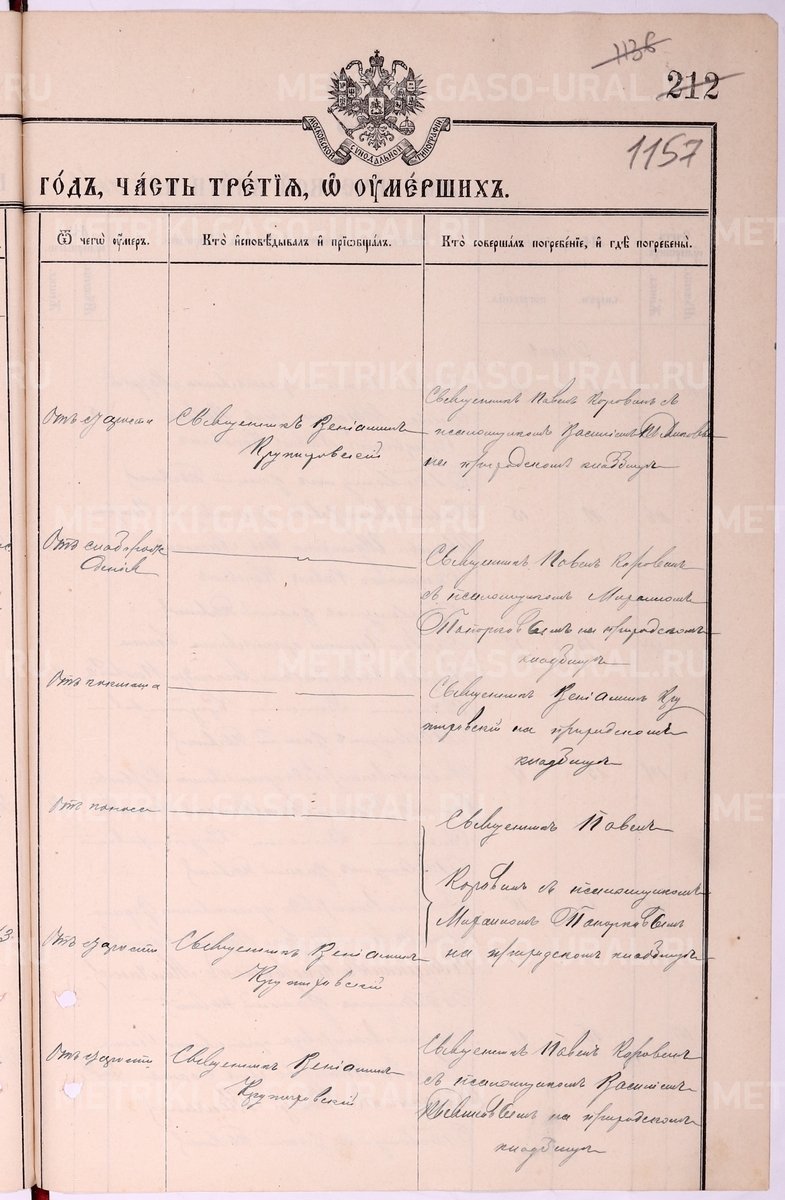 1136
212
1157
МОСКОВСКОЙ СѴНОДАЛЬНОЙ ТИПОГРАФІИ
ГО́ДЪ, ЧА́СТЬ ТРЕ́ТІѦ, Ѡ҆ ОУ҆МЕ́РШИХЪ.
Ѿ чегѡ̀ оу҆́меръ.
Кто̀ и҆сповѣ́дывалъ и҆ прїѡбща́лъ.
Кто̀ соверша́лъ погребе́нїе, и҆ гдѣ̀ погребены̀.
Отъ старости
Священникъ Веніаминъ
Крутировскій
Священникъ Павелъ Коровинъ съ
псаломщикомъ Василіемъ
на приходскомъ кладбищѣ
Отъ слаборож
денія
Священникъ Павелъ Коровинъ
съ псаломщикомъ Михаиломъ
Топорковымъ на приходскомъ
кладбищѣ
Отъ кашля
Священникъ Веніаминъ Кру
тировскій на приходскомъ
кладбищѣ
Отъ поноса
Священникъ Павелъ
Коровинъ съ псаломщикомъ
Михаиломъ Топорковымъ
на приходскомъ кладбищѣ
Отъ старости
Священникъ Веніаминъ
Крутировскій
Отъ старости
Священникъ Веніаминъ
Крутировскій
Священникъ Павелъ Коровинъ
съ псаломщикомъ Василіемъ
на приходскомъ
кладбищѣ
METRIKI.GASO-URAL.RU